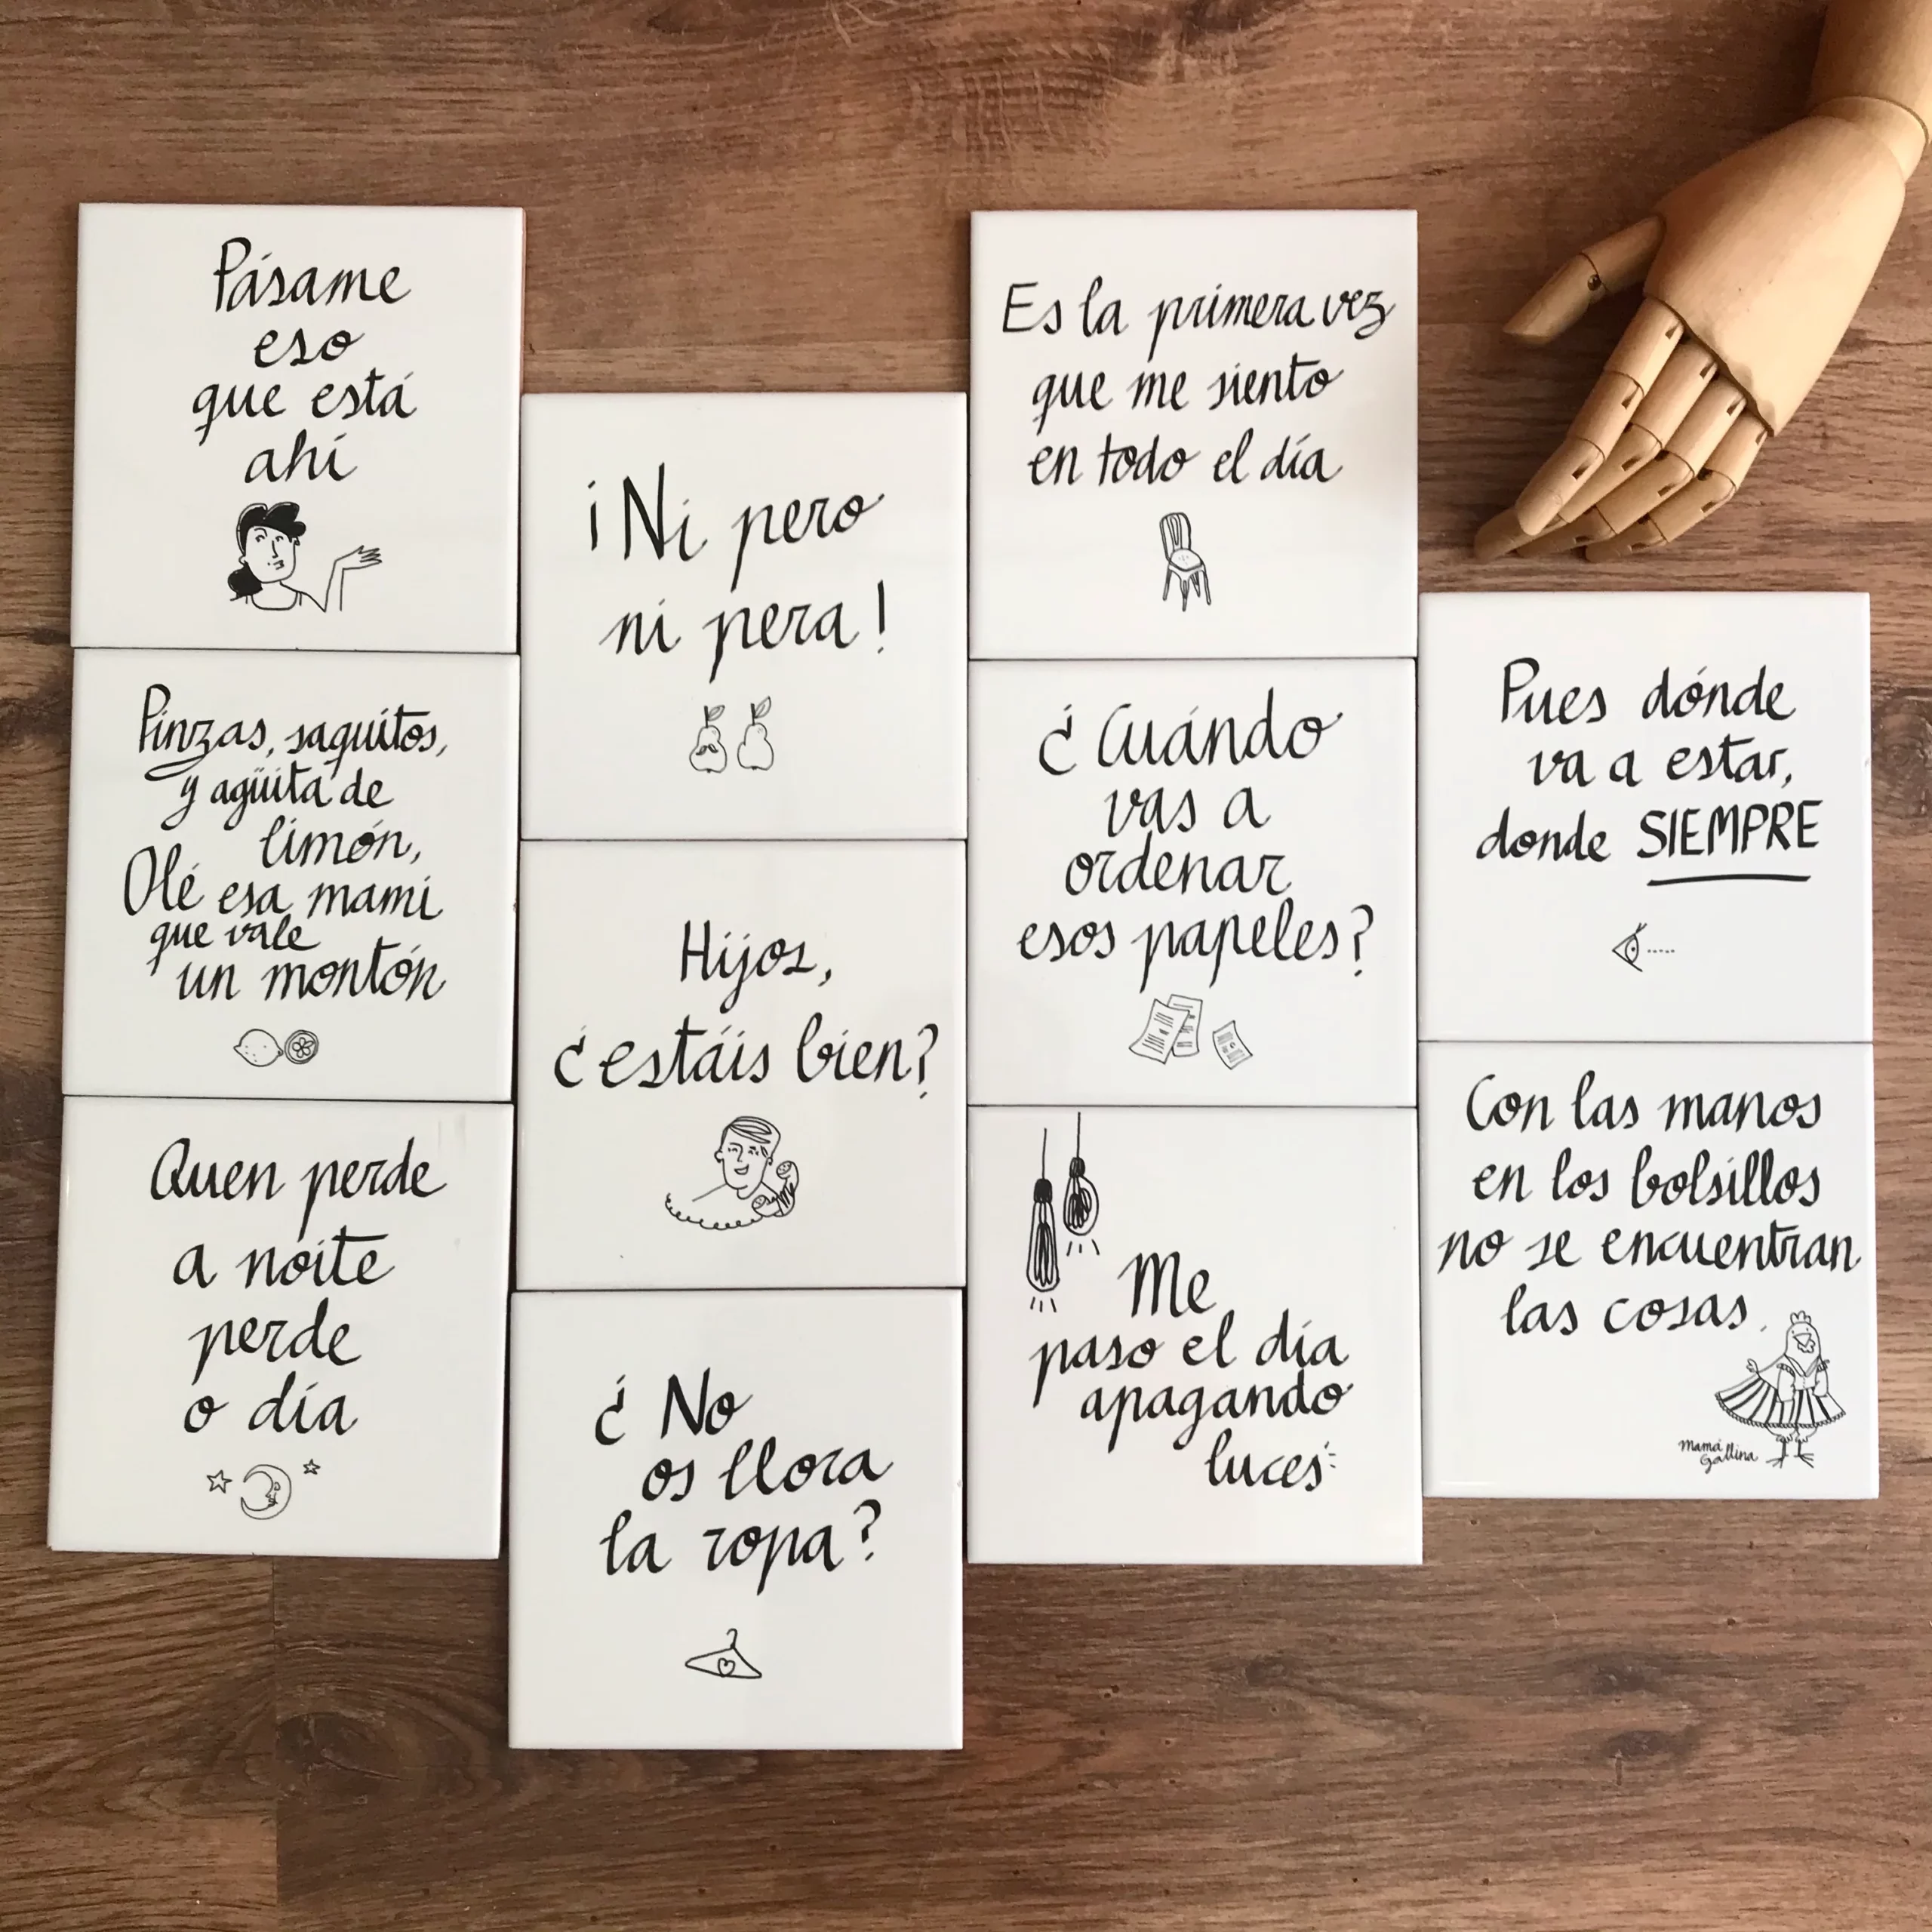 Pásame
eso
que está
ahí
Pinzas, saquitos,
y agüita de
limón,
Olé esa mami
que vale
un montón
Quen perde
a noite
perde
o día
¡Ni pero
ni pera!
Hijos,
¿estáis bien?
¿No
os llora
la ropa?
Es la primera vez
que me siento
en todo el día
¿Cuándo
vas a
ordenar
esos papeles?
Me
paso el día
apagando
luces
Pues dónde
va a estar,
donde SIEMPRE
Con las manos
en los bolsillos
no se encuentran
las cosas.
Mamá
Gallina